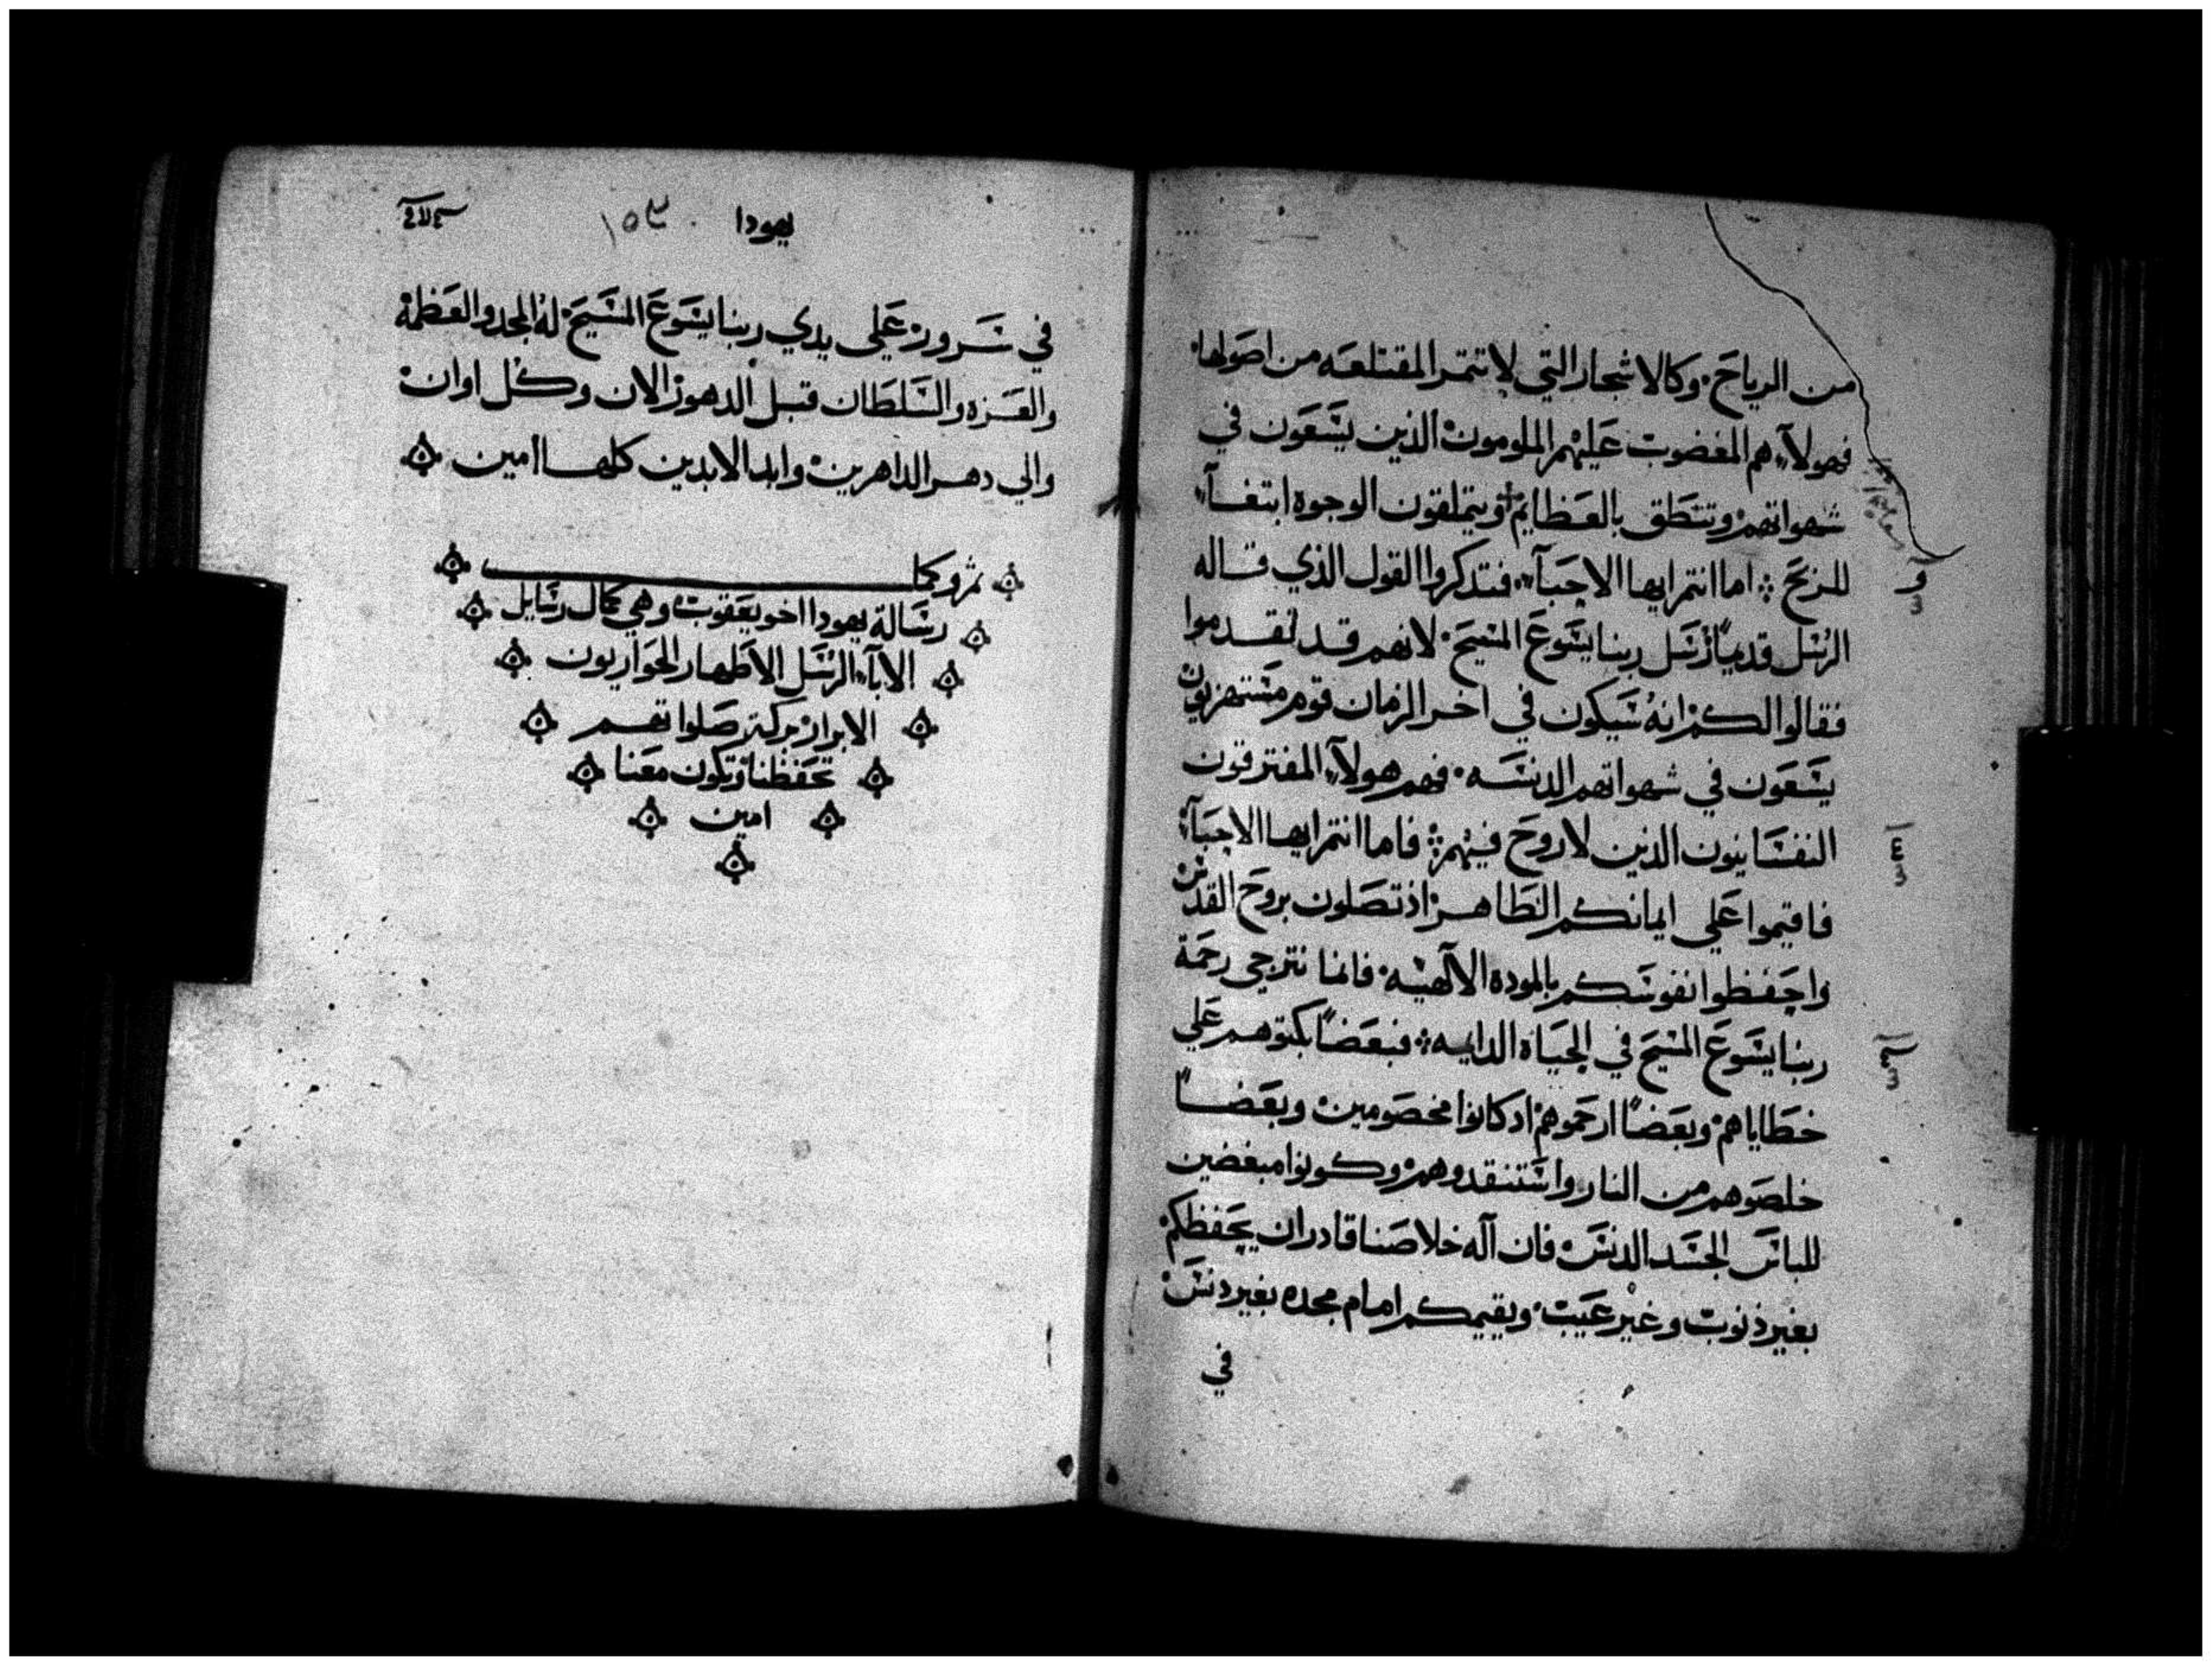 من الرياح. وكالاشجار التي لا تتمر المقتلعه من اصولها.
فهولآء هم المغضوب عليهم الملومون الذين يسعون في
شهواتهم وتنطق بالعظايم ويتملقون الوجوه ابتغآء
للربح ۞ اما انتم ايها الاحبآء. فتدكروا القول الذي قاله
الرسل قديماً رسل ربنا يسوع المسيح. لانهم قد تقدموا
فقالوا لكم انهُ سيكون في اخر الزمان قوم مستهزيون
يسعون في شهواتهم الدنسه. فهم هولآء المفترقون
النفسانيون الذين لا روح فيهم. فاما انتم ايها الاحبآء
فاقيموا علي ايمانكم الطاهر اذ تصلون بروح القدس
واحفظوا نفوسكم بالموده الالآهيه. فاننا نترجي رحمة
ربنا يسوع المسيح في الحياه الدايمه. فبعضاً بكتوهم علي
خطاياهم وبعضاً ارحموهم اد كانوا مخصومين وبعضاً
خلصوهم من النار واستنقدوهم وكونوا مبغضين
للباس الجسد الدنس فان آله خلاصنا قادر ان يحفظكم
بغير ذنوب وغير عيب. ويقيمكم امام مجده بغير دنس
في
يهودا ١٥٣
في سرور علي يدي ربنا يسوع المسيح. لهُ المجد والعظمة
والعزه والسلطان قبل الدهور الان وكل اوان
والي دهر الداهرين وابد الابدين كلها امين
ثم وكما
رسالة يهودا اخو يعقوب وهي كمال رسايل
الابآء الرسل الاطهار الحواريون
الابرار بركة صلواتهم
تحفظنا وتكون معنا
امين